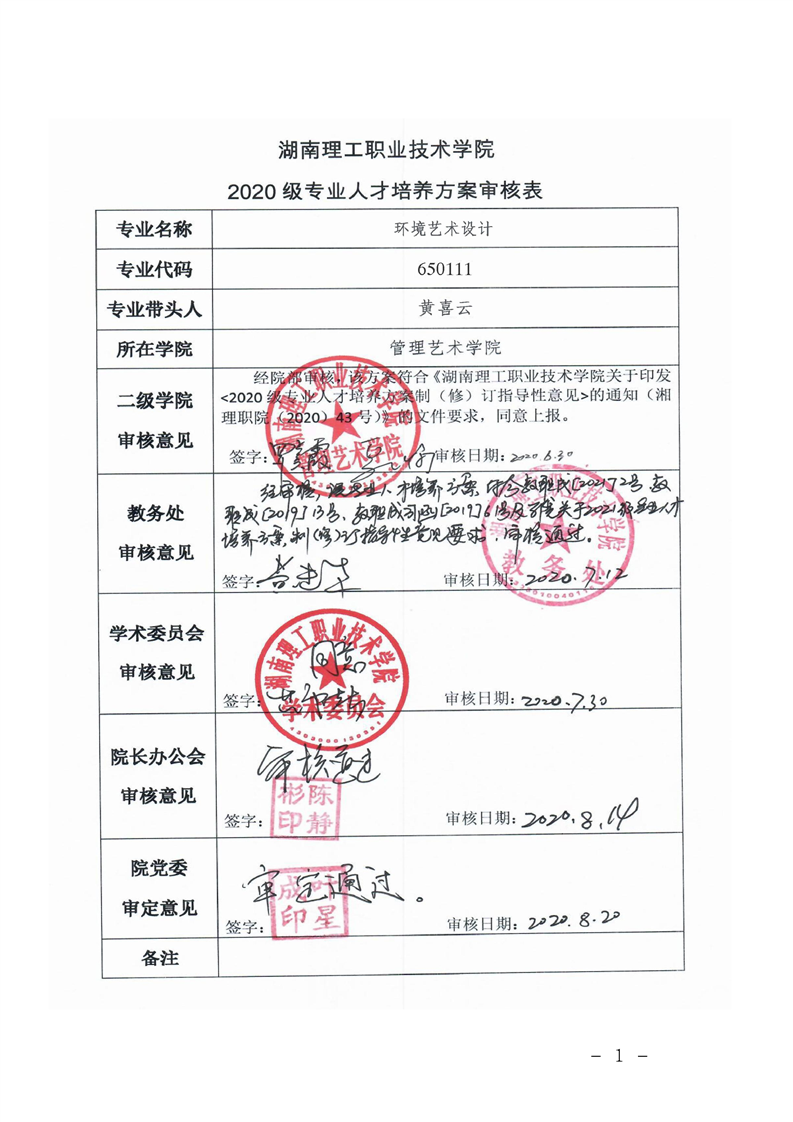 湖南理工职业技术学院
2020 级专业人才培养方案审核表
专业名称 环境艺术设计
专业代码 650111
专业带头人 黄喜云
所在学院 管理艺术学院
二级学院
审核意见
经院部审核，该方案符合《湖南理工职业技术学院关于印发
<2020 级专业人才培养方案制（修）订指导性意见>的通知（湘
理职院〔2020〕43 号）》的文件要求，同意上报。
签字： 审核日期：2020.6.30
湖南理工职业技术学院
管理艺术学院
教务处
审核意见
经审核，该专业人才培养方案符合教职成[2021]2号、教
职成[2019]13号、教职成司函[2019]61号及学校关于2021级专业人才
培养方案制(修)订指导性意见要求，审核通过。
签字： 审核日期：2020.7.12
湖南理工职业技术学院
教务处
学术委员会
审核意见
同意
签字： 审核日期：2020.7.30
湖南理工职业技术学院
学术委员会
院长办公会
审核意见
审核通过
签字： 审核日期：2020.8.14
彬陈
印静
院党委
审定意见
审定通过。
签字： 审核日期：2020.8.20
成叶
印星
备注
- 1 -